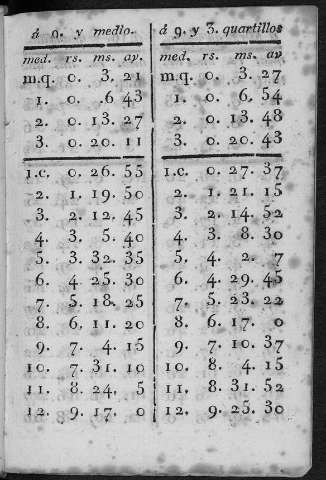 á 9. y medio.
med. rs. ms. av.
m.q. 0. 3. 21
1. 0. .6 43
2. 0. 13. 27
3. 0. 20. 11
1.c. 0. 26. 55
2. 1. 19. 50
3. 2. 12. 45
4. 3. 5. 40
5. 3. 32. 35
6. 4. 25. 30
7. 5. 18. 25
8. 6. 11. 20
9. 7. 4. 15
10. 7. 31. 10
11. 8. 24. 5
12. 9. 17. 0
á 9. y 3. quartillos
med. rs. ms. av
m.q. 0. 3. 27
1. 0. 6. 54
2. 0. 13. 48
3. 0. 20. 43
1.c. 0. 27. 37
2. 1. 21. 15
3. 2. 14. 52
4. 3. 8. 30
5. 4. 2. 7
6. 4. 29. 45
7. 5. 23. 22
8. 6. 17. 0
9. 7. 10. 37
10. 8. 4. 15
11. 8. 31. 52
12. 9. 25. 30